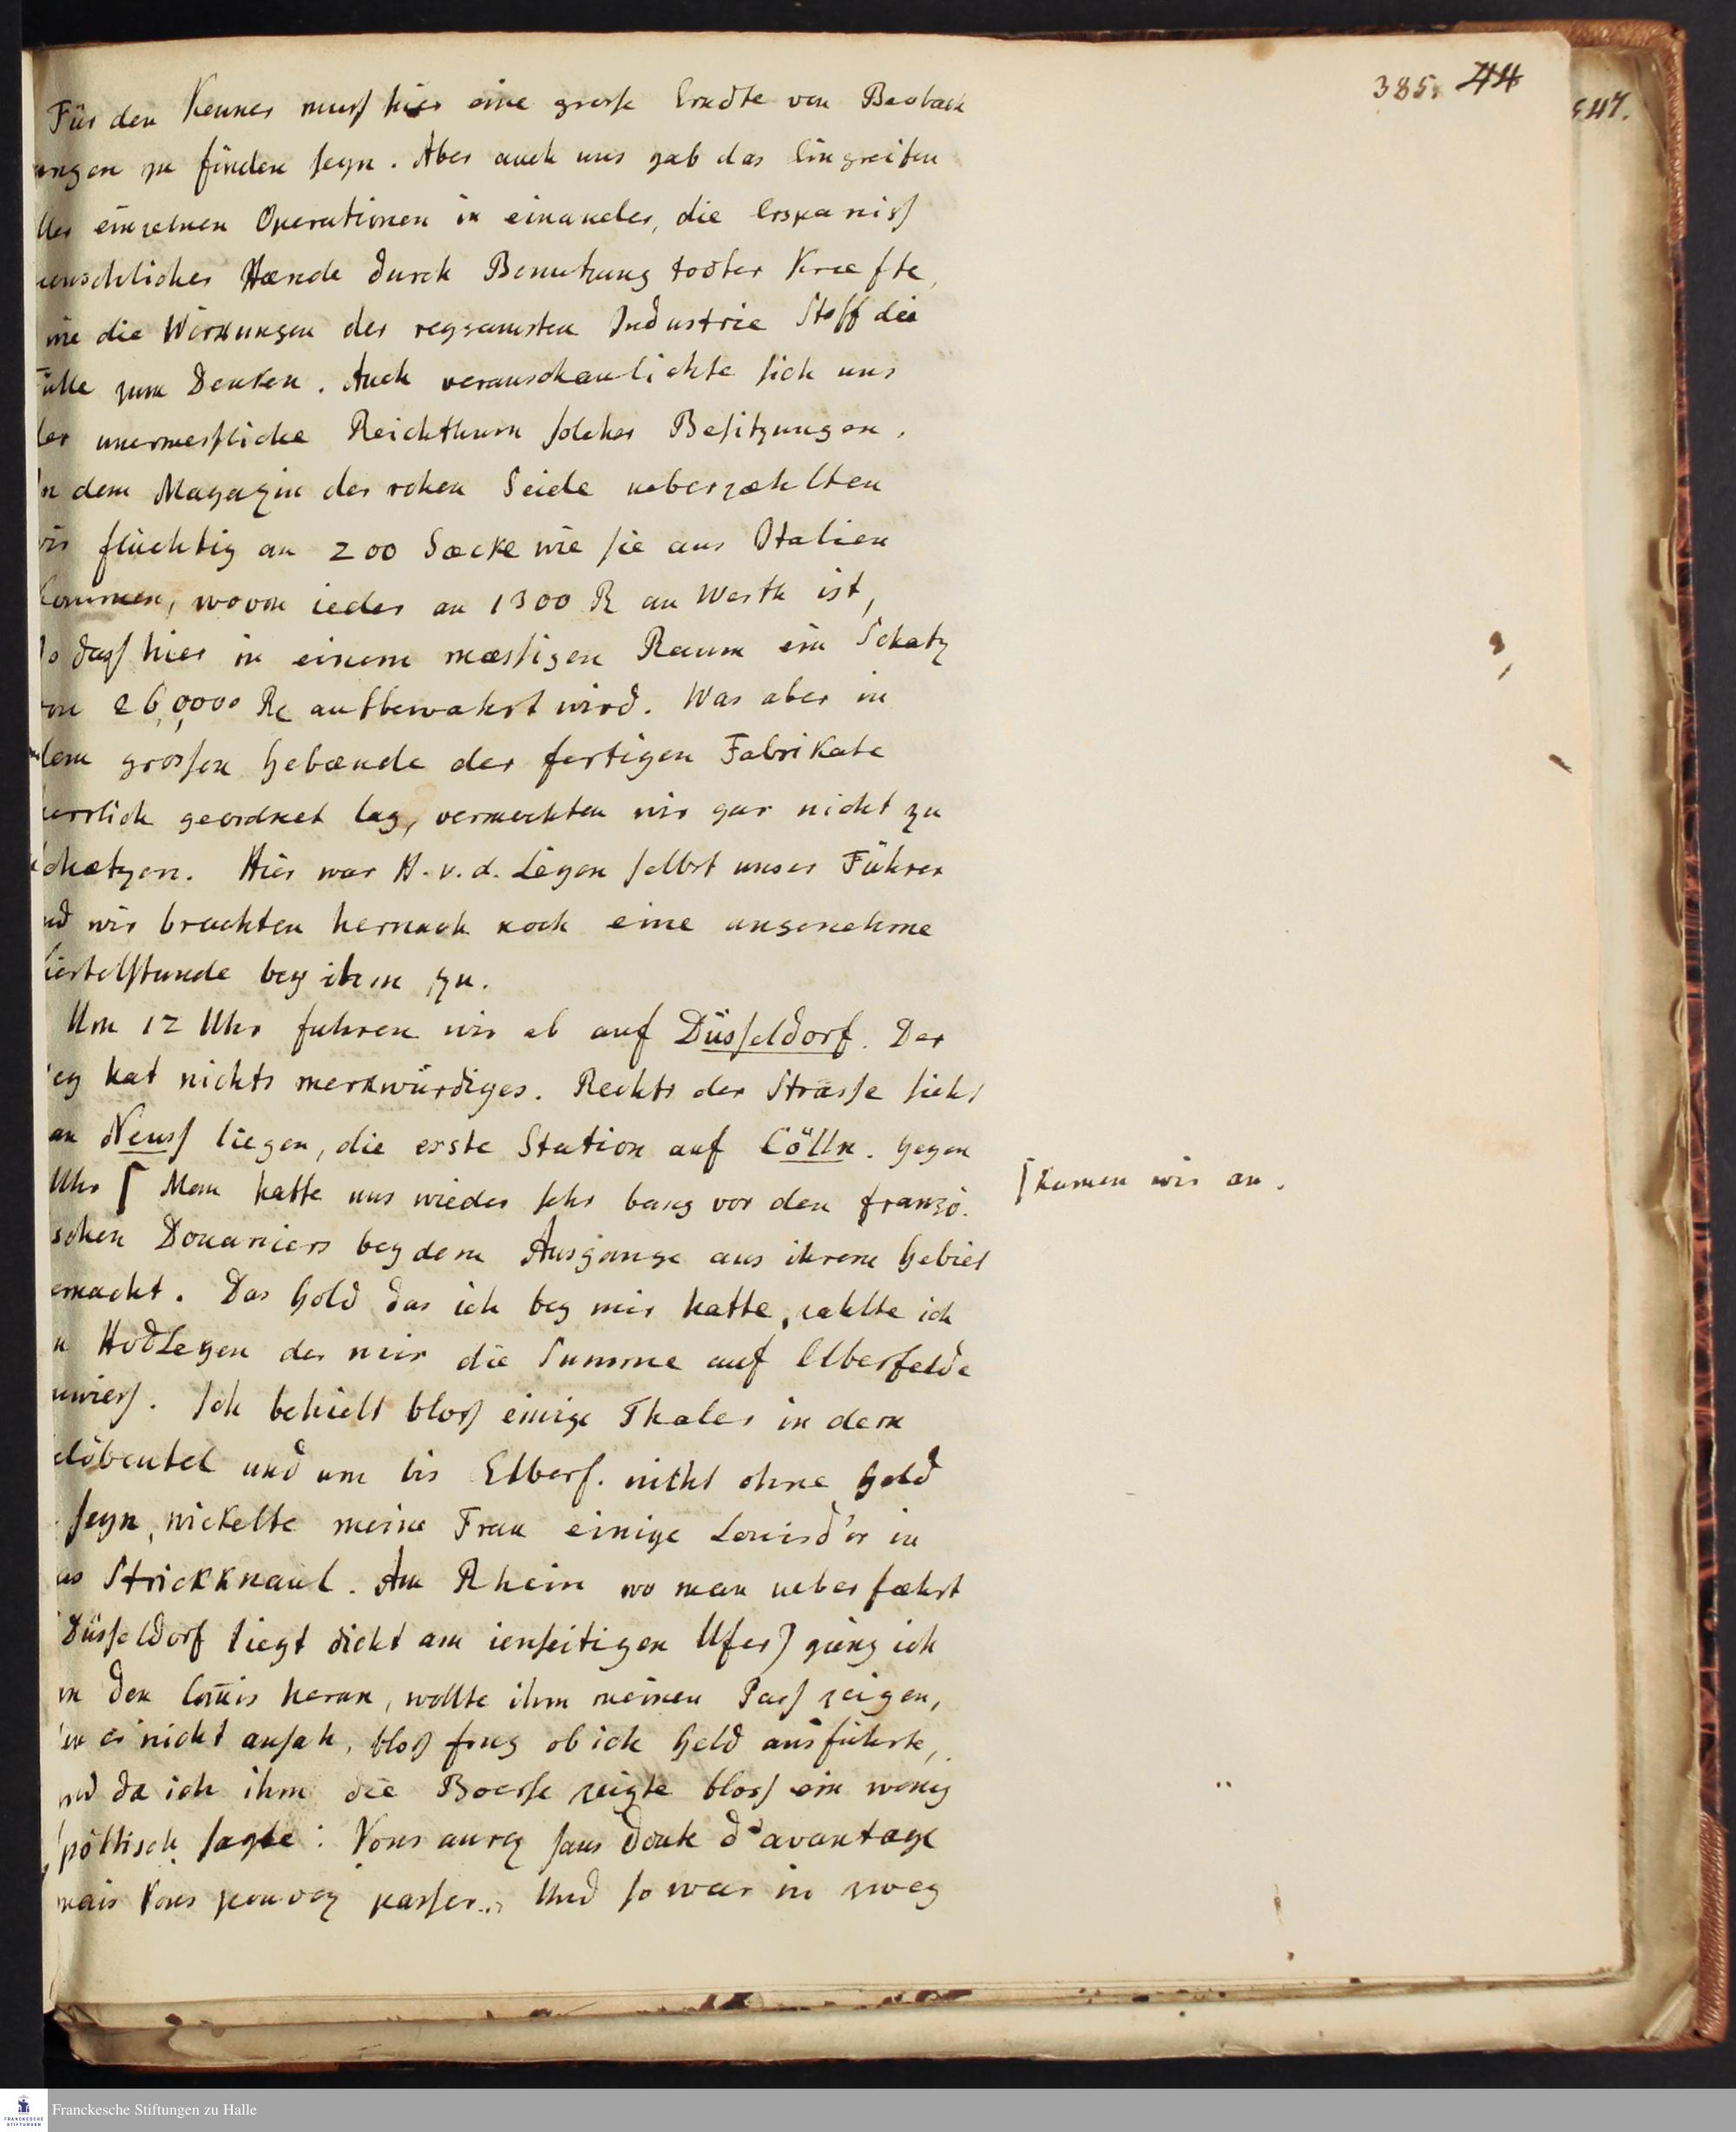 385. 44
547.
Für den Kenner muss hier eine grosse Erndte von Beobach
ungen zu finden seyn. Aber auch uns gab das Eingreifen
ller einzelnen Operationen in einander, die Ersparniss
enschlicher Hænde durch Benutzung todter Kræfte,
wie die Wirkungen der regsamsten Industrie Stoff die
ülle zum Denken. Auch veranschaulichte sich uns
der unermessliche Reichthum solcher Besitzungen.
In dem Magazin der rohen Seide ueberzæhlten
wir flüchtig an 200 Sæcke wie sie aus Italien
kommen, wovon ieder an 1300 R an Werth ist,
so dass hier in einem mæssigen Raum ein Schatz
von 26,0000 R aufbewahrt wird. Was aber in
dem grossen Gebæude der fertigen Fabrikate
herrlich geordnet lag, vermochten wir gar nicht zu
schætzen. Hier war H. v. d. Leyen selbst unser Führer
und wir brachten hernach noch eine angenehme
Viertelstunde bey ihm zu.
Um 12 Uhr fuhren wir ab auf Düsseldorf. Der
eg hat nichts merkwürdiges. Rechts der Strasse sieht
an Neuss liegen, die erste Station auf Cölln. Gegen
Uhr ⌈ Man hatte uns wieder sehr bang vor den franzö.
⌈ kamen wir an.
schen Douaniers bey dem Ausgange aus ihrem Gebiet
emacht. Das Gold das ich bey mir hatte, zahlte ich
n HvdLeyen der mir die Summe auf Elberfelde
nwiess. Ich behielt bloss einige Thaler in dem
eldbeutel und um bis Elberf. nicht ohne Geld
seyn, wickelte meine Frau einige Louisd'or in
as Strickknaul. Am Rhein wo man ueberfæhrt
Düsseldorf liegt dicht am ienseitigen Ufer) gieng ich
an den Com̅is heran, wollte ihm meinen Pass zeigen,
en er nicht ansah, bloss frug ob ich Geld ausführte,
und da ich ihm die Boerse zeigte bloss ein wenig
spöttisch sagte: Vous aurez sans doute d'avantage
mais Vous pouvez passer.. Und so war in zwey
Franckesche Stiftungen zu Halle